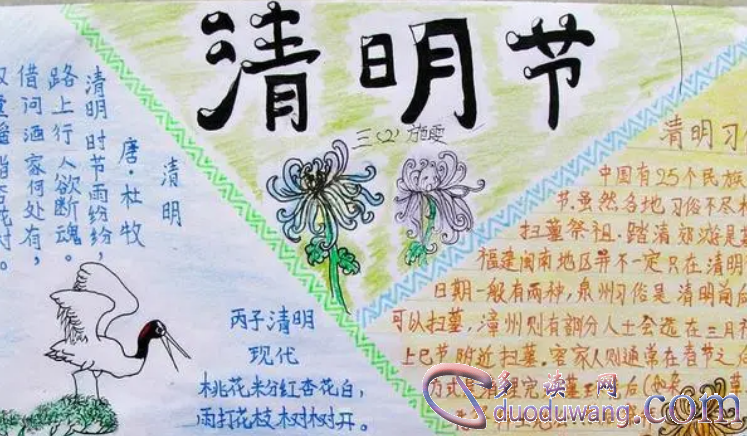 清明节
三(2) 施
清明
唐·杜牧
清明时节雨纷纷,
路上行人欲断魂。
借问酒家何处有,
童遥指杏花村。
丙子清明
现代
桃花粉红杏花白,
雨打花枝树树开。
清明习
中国有25个民族
节。虽然各地习俗不尽
扫墓祭祖、踏清郊游是
福建闽南地区并不一定只在清明
日期一般有两种,泉州习俗是清明前
可以扫墓,漳州则有部分人士会选在三月
上巳节附近扫墓。客家人则通常在春节之
方式是清理完墓 后(如 草
多读网
duoduwang.com